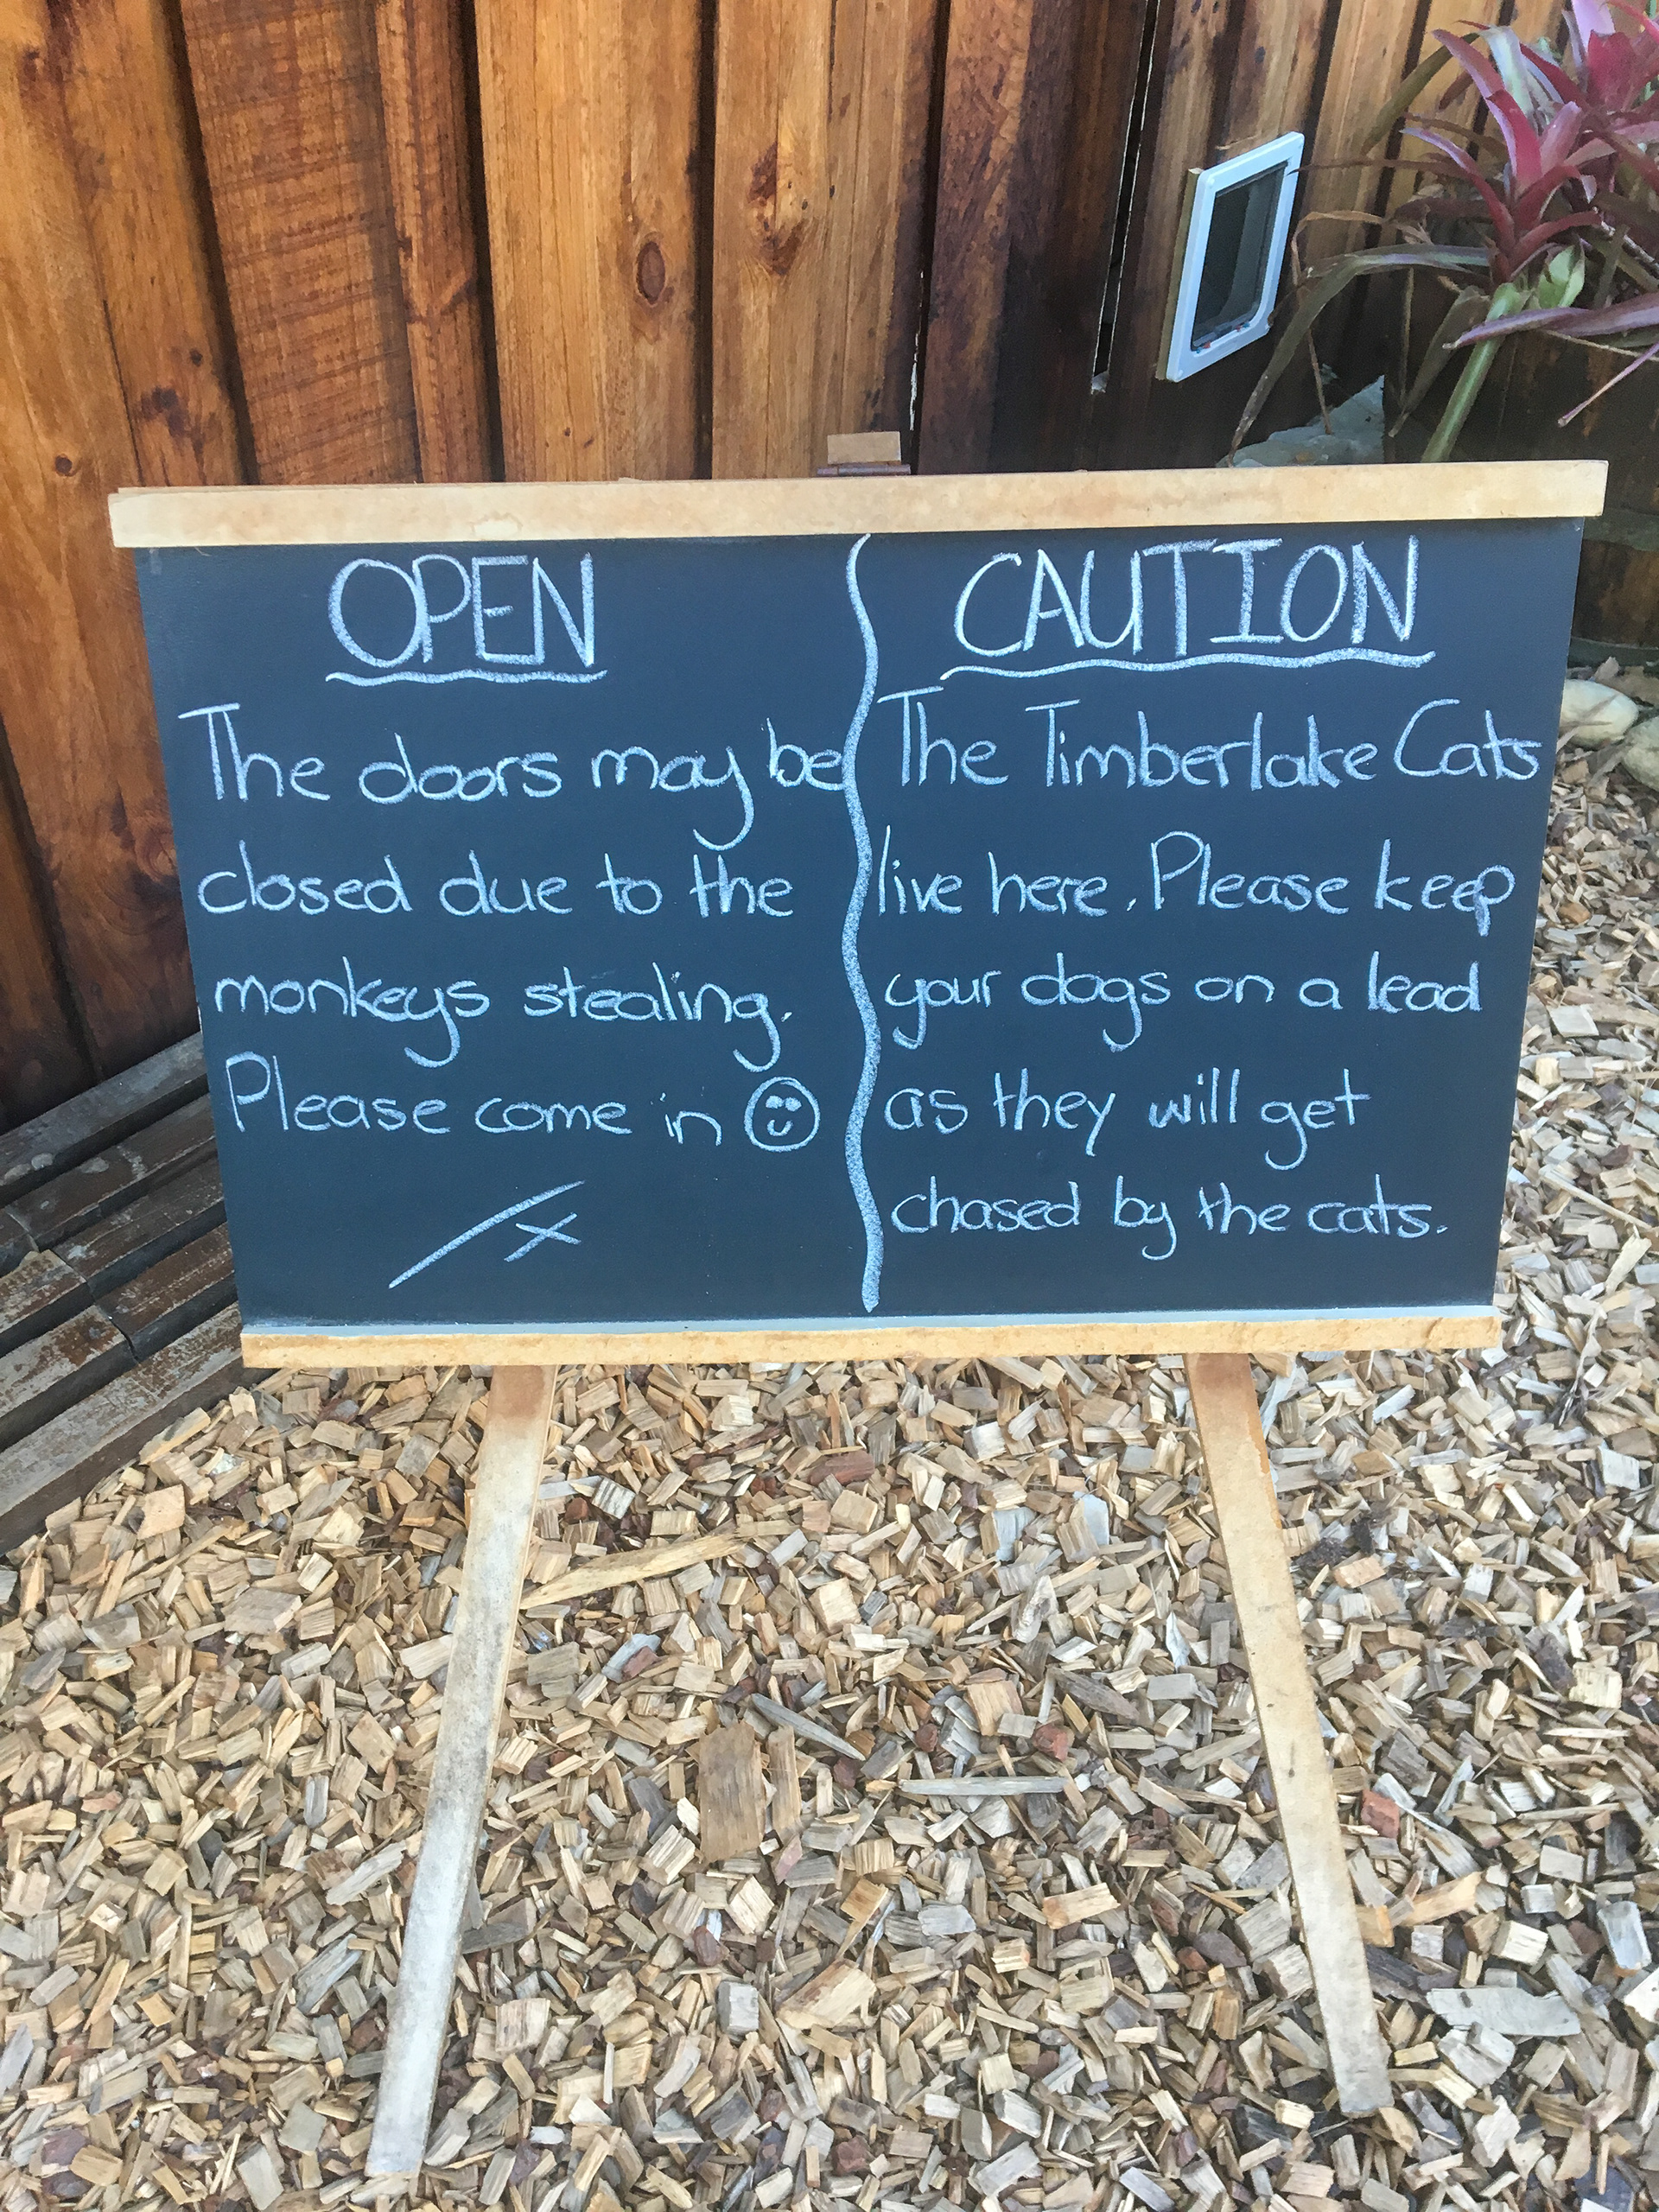 OPEN
The doors may be
closed due to the
monkeys stealing.
Please come in ☺
x
CAUTION
The Timberlake Cats
live here. Please keep
your dogs on a lead
as they will get
chased by the cats.